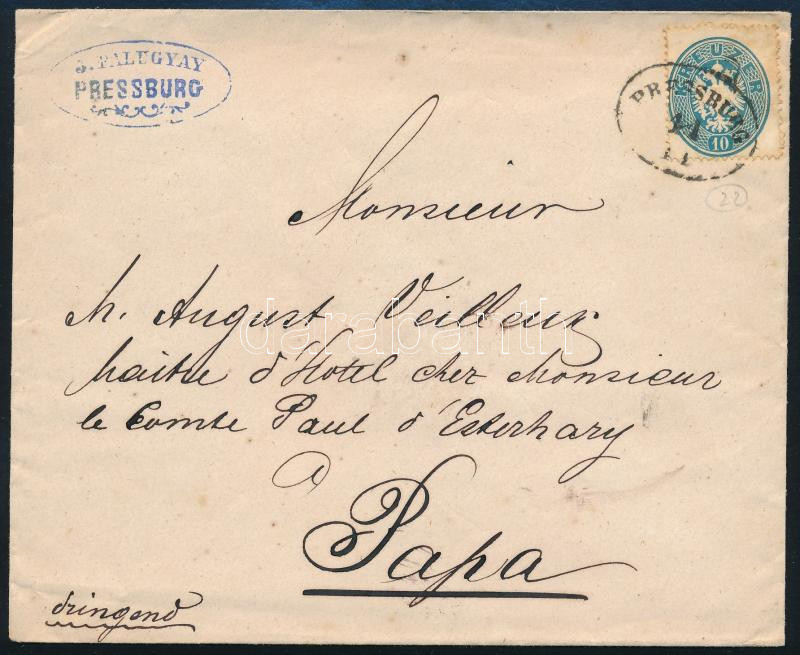 J. PALUGYAY
PRESSBURG
KREUZER
10
PRESSBURG
22
Monsieur
M. August Veilleux
Maitre d'Hotel chez Monsieur
le Comte Paul d'Esterhazy
à
Papa
dringend
darabanth